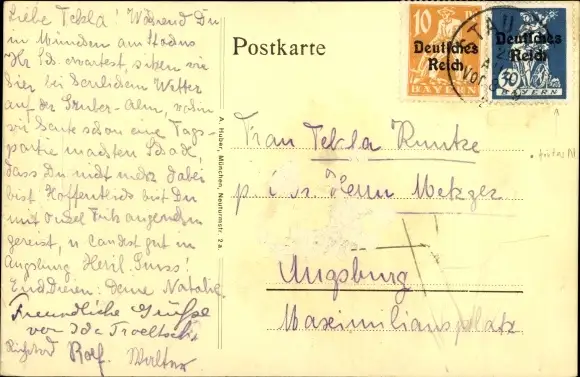 Liebe Tekla! Während Du
in München am Stadus
sitzen wir
hier bei herrlichem Wetter
auf der Gruber-Alm, wohin
wir heute schon eine Tags-
partie machten. Schade,
dass Du nicht mehr dabei
bist. Hoffentlich bist Du
mit Onkel Fritz angenehm
gereist, u. landest gut in
Augsburg. Herzl. Gruss!
Deine Natalie.
Freundliche Grüsse
von Ida Troeltsch.
Richard Rolf. Walter
Postkarte
A. Huber, München, Neuturmstr. 2a.
10
Deutsches
Reich
BAYERN
Deutsches
Reich
50
BAYERN
Frau Tekla Runke
Metzger
Augsburg
Maximiliansplatz